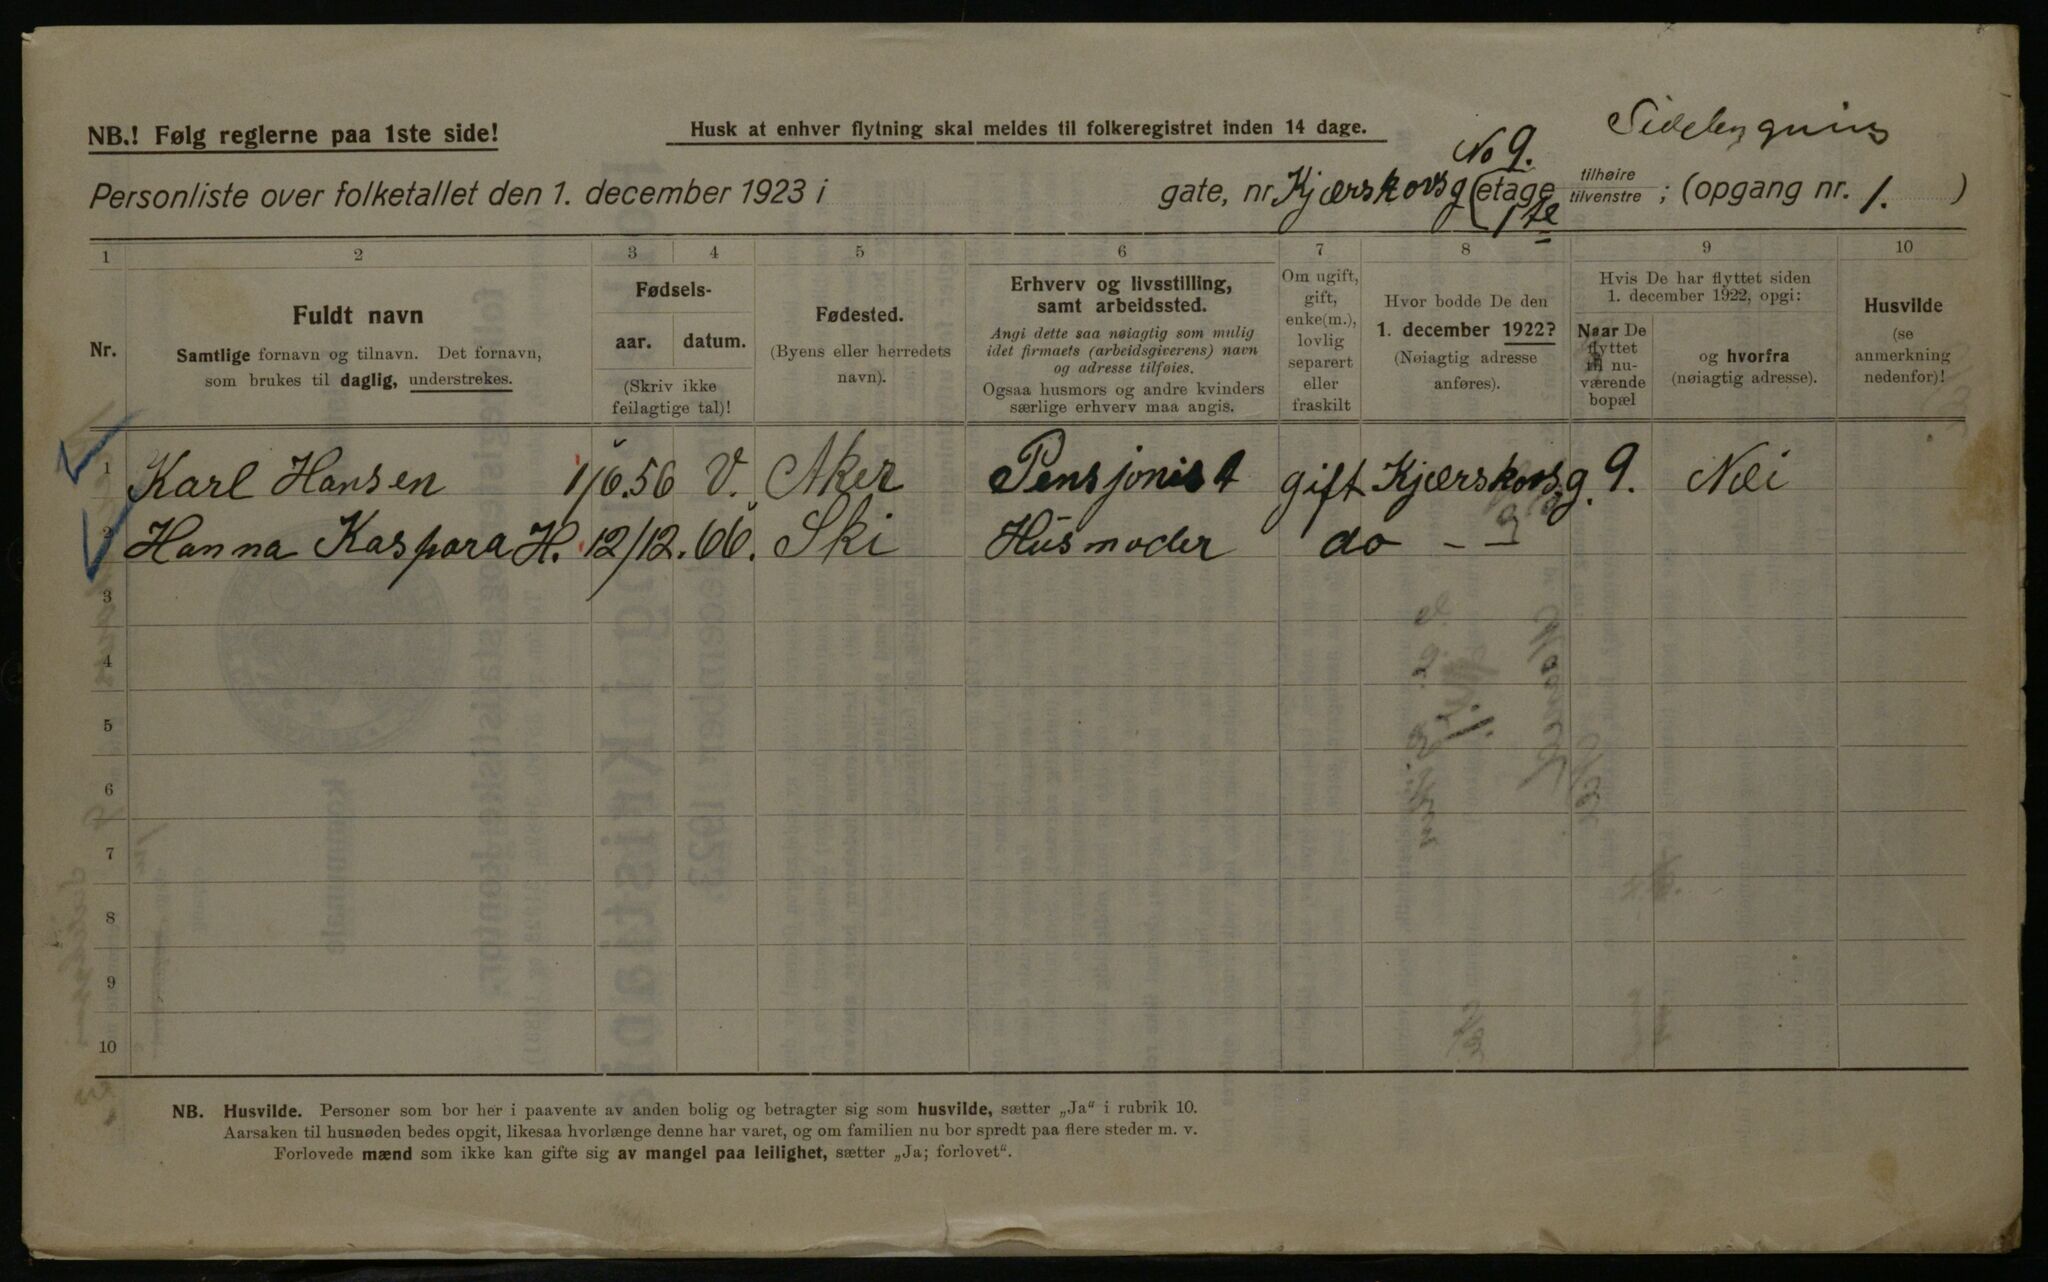 NB.! Følg reglerne paa 1ste side!
Husk at enhver flytning skal meldes til folkeregistret inden 14 dage.
No 9.
Personliste over folketallet den 1. december 1923 i gate, nr. Kjærskovsg (etage 1te tilhøire tilvenstre ; (opgang nr. 1. )
1 2 3 4 5 6 7 8 9 10
Nr.
Fuldt navn
Samtlige fornavn og tilnavn. Det fornavn,
som brukes til daglig, understrekes.
Fødsels-
aar. datum.
(Skriv ikke
feilagtige tal)!
Fødested.
(Byens eller herredets
navn).
Erhverv og livsstilling,
samt arbeidssted.
Angi dette saa nøiagtig som mulig
idet firmaets (arbeidsgiverens) navn
og adresse tilføies.
Ogsaa husmors og andre kvinders
særlige erhverv maa angis.
Om ugift,
gift,
enke(m.),
lovlig
separert
eller
fraskilt
Hvor bodde De den
1. december 1922?
(Nøiagtig adresse
anføres).
Hvis De har flyttet siden
1. december 1922, opgi:
Naar De
flyttet
til nu-
værende
bopæl
og hvorfra
(nøiagtig adresse).
Husvilde
(se
anmerkning
nedenfor)!
1 Karl Hansen 1/6.56 V. Aker Pensjonist gift Kjærskovsg. 9. Nei
2 Hanna Kaspara H. 12/12.66. Ski Husmoder do - -
3
4
5
6
7
8
9
10
NB. Husvilde. Personer som bor her i paavente av anden bolig og betragter sig som husvilde, sætter „Ja“ i rubrik 10.
Aarsaken til husnøden bedes opgit, likesaa hvorlænge denne har varet, og om familien nu bor spredt paa flere steder m. v.
Forlovede mænd som ikke kan gifte sig av mangel paa leilighet, sætter „Ja; forlovet“.